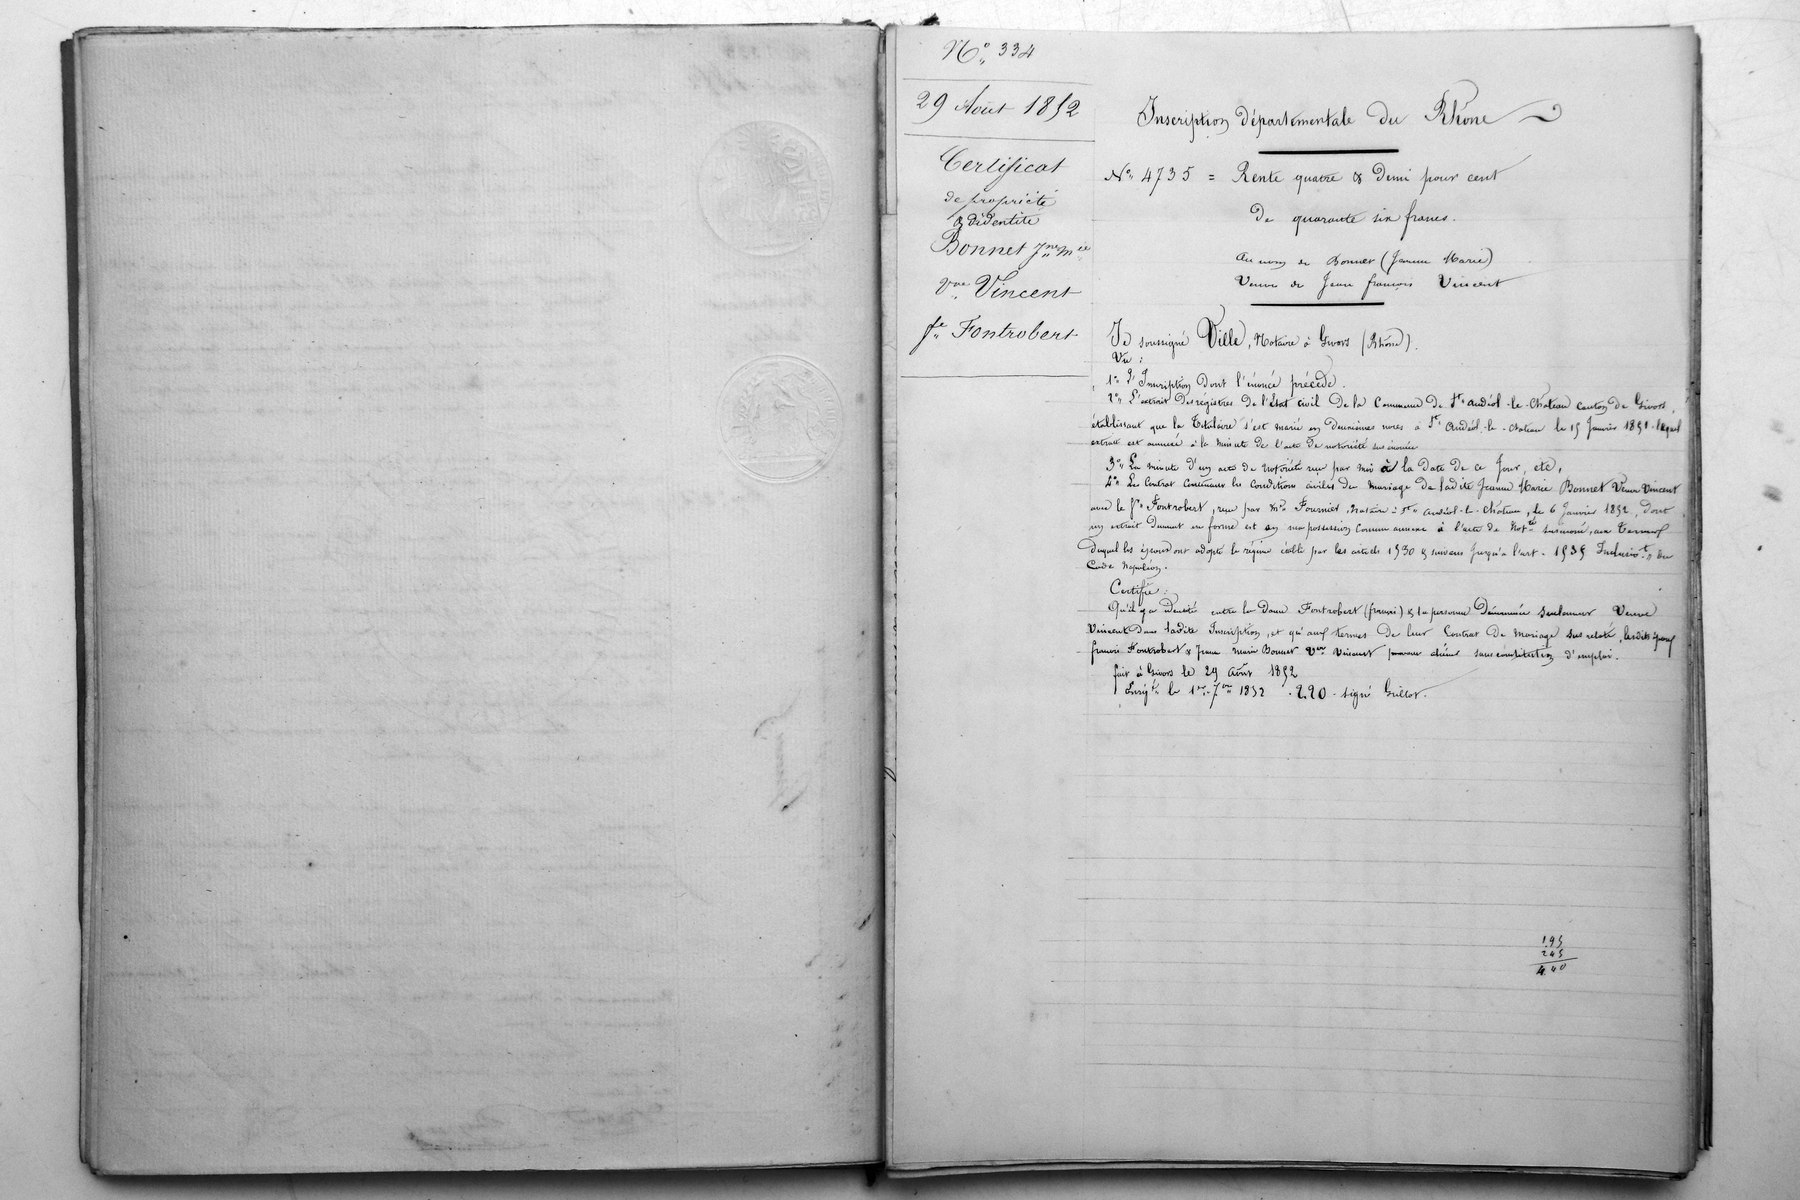 N° 334
29 Août 1852
Certificat
de propriété
& d'identité
Bonnet Jne Mie
vve Vincent
fe Fontrobert
Inscription départementale du Rhône
N° 4735 = Rente quatre & Demi pour cent
De quarante six francs.
Au nom de Bonnet (Jeanne Marie)
Veuve de Jean françois Vincent
Je soussigné Ville, Notaire à Givors (Rhône).
Vu :
1° L'Inscription dont l'énoncé précède.
2° L'extrait des régistres de l'Etat civil de la Commune de St Andéol-le-Château canton de Givors,
établissant que la Titulaire s'est mariée en deuxièmes noces à St Andéol-le-château le 15 Janvier 1851. lequel
extrait est annexé à la minute de l'acte de notoriété sus énoncée
3° La minute d'un acte de notoriété reçu par moi à la date de ce Jour, etc,
4° Le Contrat contenant les conditions civiles du mariage de ladite Jeanne Marie Bonnet Veuve Vincent
avec le Sr Fontrobert, reçu par Me Fournier, notaire à St Andéol-le-château, le 6 Janvier 1852, dont
un extrait Dument en forme est en ma possession comme annexe à l'acte de Notté susénoncé, aux Termes
duquel les époux ont adopté le régime établi par les articles 1530 & suivans Jusqu'à l'art. 1535 Inclusivt du
Code Napoléon.
Certifie :
Qu'il y a identité entre la Dame Fontrobert (françois) & la personne Dénommée seulement Veuve
Vincent Dans ladite Inscription, et qu'aux termes de leur Contrat de mariage sus relaté, lesdits époux
françois Fontrobert & Jeanne Marie Bonnet Vve Vincent peuvent aliéner sans constitution d'emploi.
fait à Givors le 29 Août 1852
Enrgé le 1er 7bre 1852 . 2.20 . signé Guillot.
195
245
440